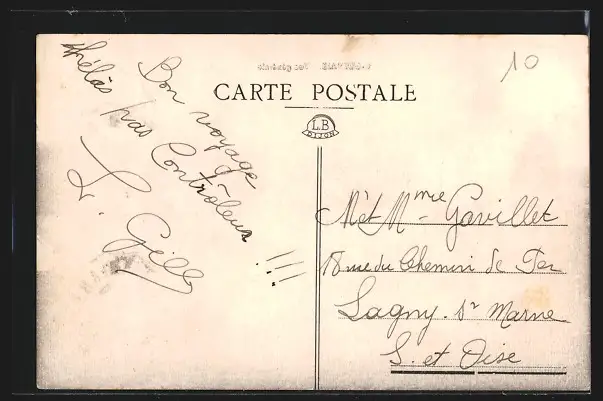 CARTE POSTALE
LB
DIJON
10
Bon voyage
hélas pas Contrôleur !!!
L. Gille
M et Mme Gavillet
18 rue du Chemin de Fer
Lagny. s/r Marne
S. et Oise